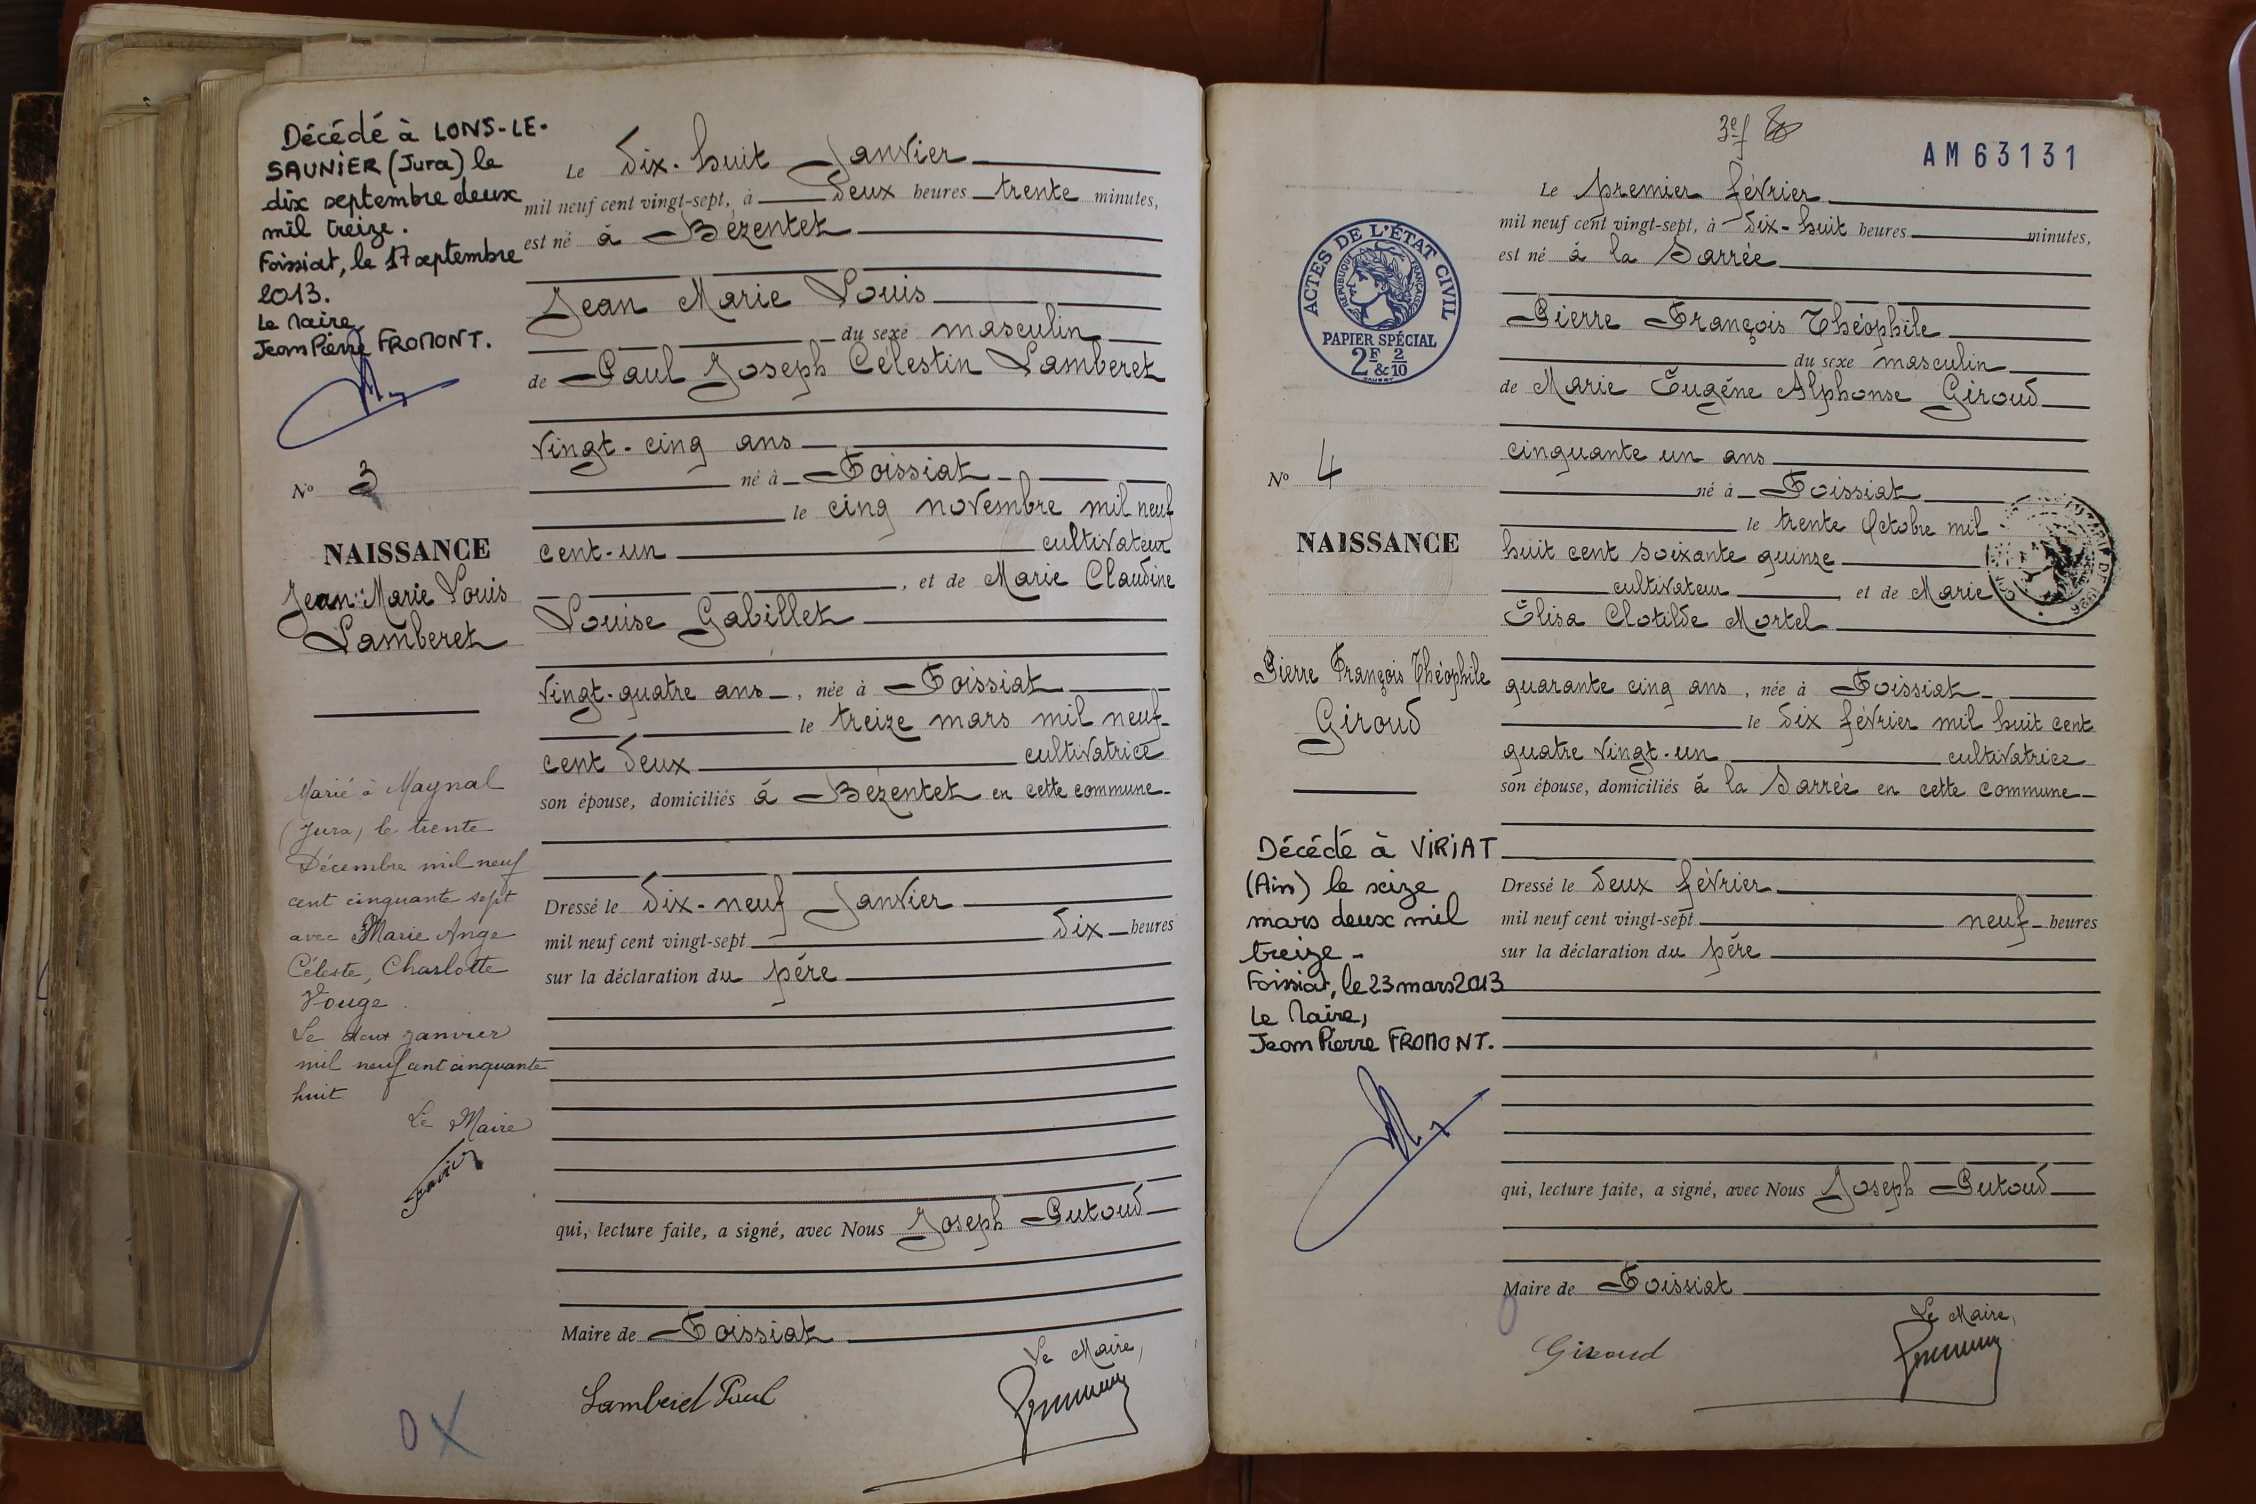 Décédé à LONS-LE-
SAUNIER (Jura) le
dix septembre deux
mil treize.
Foissiat, le 17 septembre
2013.
Le Maire,
Jean Pierre FROMONT.
N° 3
NAISSANCE
Jean Marie Louis
Lamberet
Marié à Maynal
(Jura) le trente
Décembre mil neuf
cent cinquante sept
avec Marie Ange
Céleste, Charlotte
Vouge.
Le deux janvier
mil neuf cent cinquante
huit
Le Maire
Le dix-huit Janvier
mil neuf cent vingt-sept, à deux heures trente minutes,
est né à Bézentet
Jean Marie Louis
du sexe masculin
de Paul Joseph Célestin Lamberet
vingt-cinq ans
né à Foissiat
le cinq novembre mil neuf
cent-un cultivateur
, et de Marie Claudine
Louise Gabillet
vingt-quatre ans, née à Foissiat
le treize mars mil neuf
cent deux cultivatrice
son épouse, domiciliés à Bézentet en cette commune
Dressé le dix-neuf Janvier
mil neuf cent vingt-sept dix heures
sur la déclaration du père
qui, lecture faite, a signé, avec Nous Joseph Putoud
Maire de Foissiat
Le Maire,
Lamberet Paul
0 X
3e f
AM 63131
ACTES DE L'ÉTAT CIVIL
RÉPUBLIQUE FRANÇAISE
PAPIER SPÉCIAL
2F & 2/10
N° 4
NAISSANCE
Pierre François Théophile
Giroud
Décédé à VIRIAT
(Ain) le seize
mars deux mil
treize -
Foissiat, le 23 mars 2013
Le Maire,
Jean Pierre FROMONT.
Le premier février
mil neuf cent vingt-sept, à dix-huit heures minutes,
est né à la Sarrée
Pierre François Théophile
du sexe masculin
de Marie Eugène Alphonse Giroud
cinquante un ans
né à Foissiat
le trente Octobre mil
huit cent soixante quinze
cultivateur et de Marie
Elisa Clotilde Mortel
quarante cinq ans, née à Foissiat
le dix février mil huit cent
quatre vingt-un cultivatrice
son épouse, domiciliés à la Sarrée en cette commune
Dressé le deux février
mil neuf cent vingt-sept neuf heures
sur la déclaration du père
qui, lecture faite, a signé, avec Nous Joseph Putoud
Maire de Foissiat
Le Maire,
Giroud